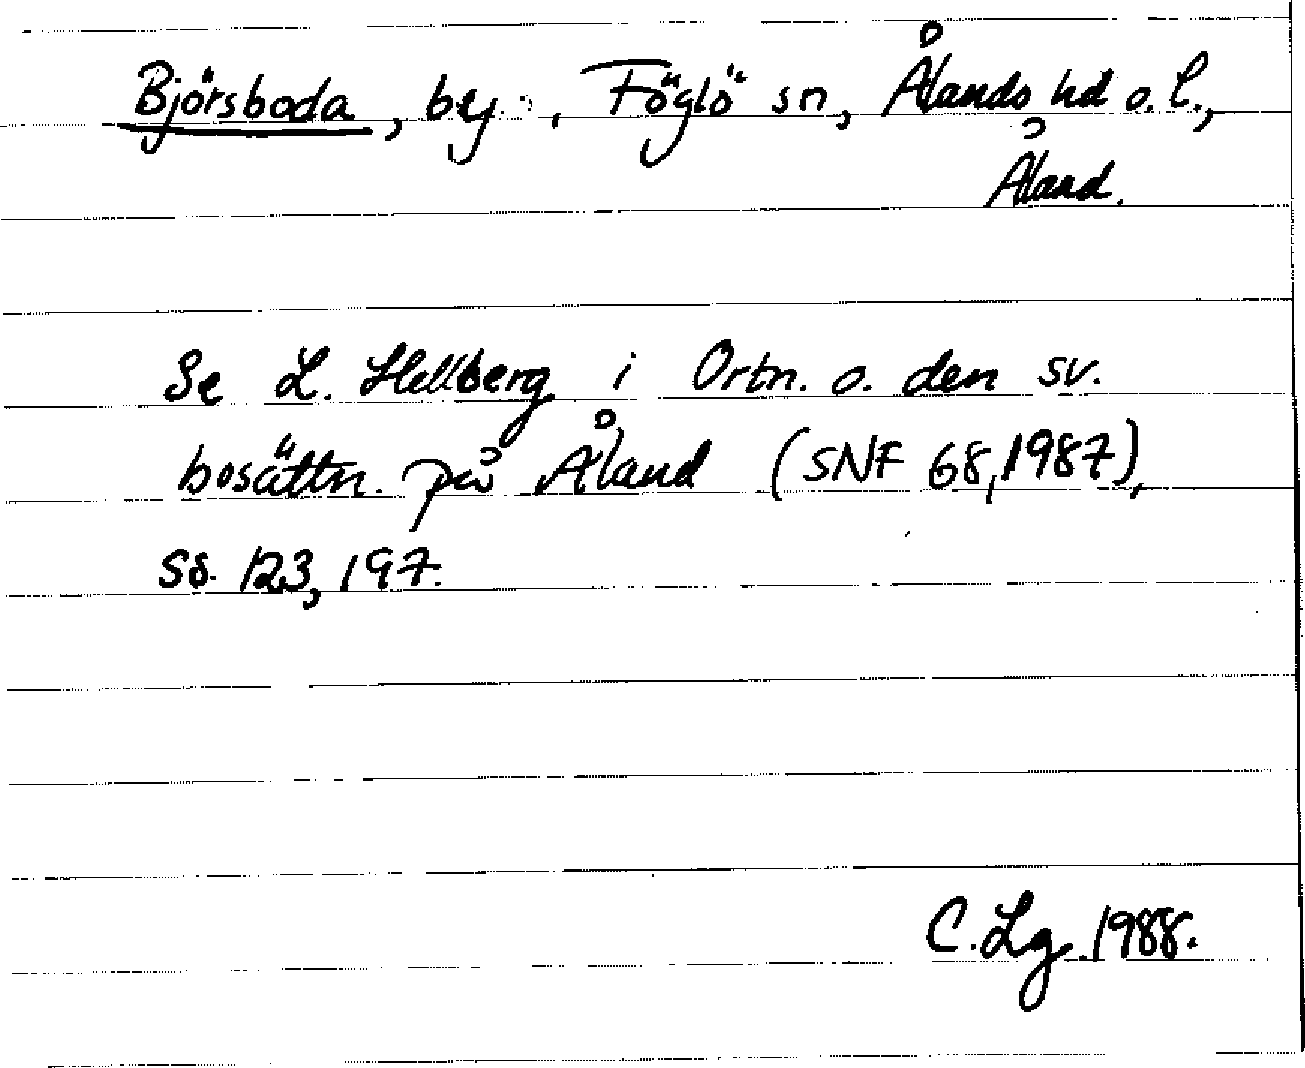 Björsboda, by, Föglö sn, Ålands hd o. l.,
Åland.
Se L. Hellberg i Ortn. o. den sv.
bosättn. på Åland (SNF 68, 1987),
ss. 123, 197.
C. Lg 1988.